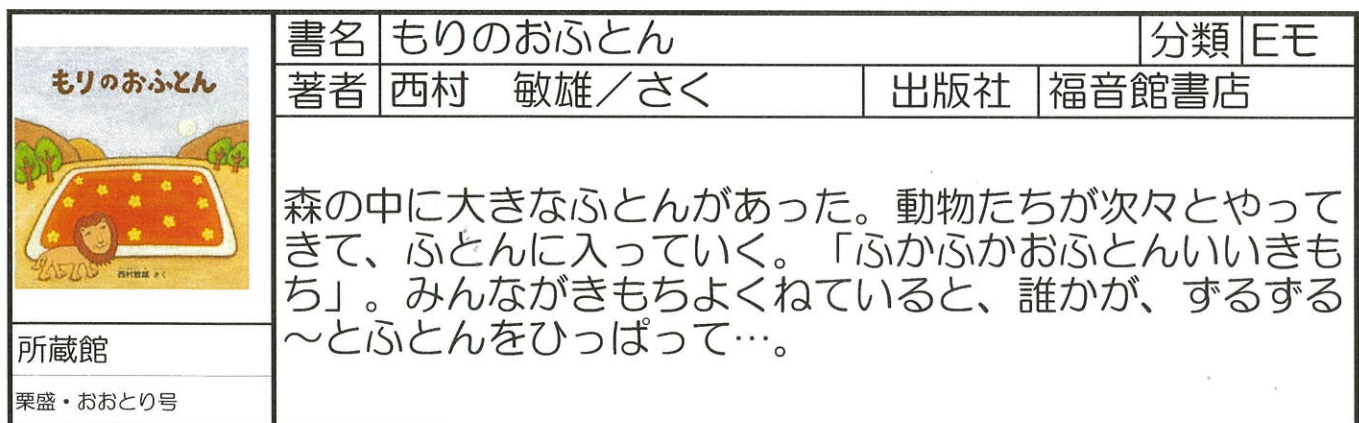 もりのおふとん
西村敏雄 さく
所蔵館
栗盛・おおとり号
書名 もりのおふとん 分類 Eモ
著者 西村 敏雄／さく 出版社 福音館書店
森の中に大きなふとんがあった。動物たちが次々とやって
きて、ふとんに入っていく。「ふかふかおふとんいいきも
ち」。みんながきもちよくねていると、誰かが、ずるずる
～とふとんをひっぱって…。